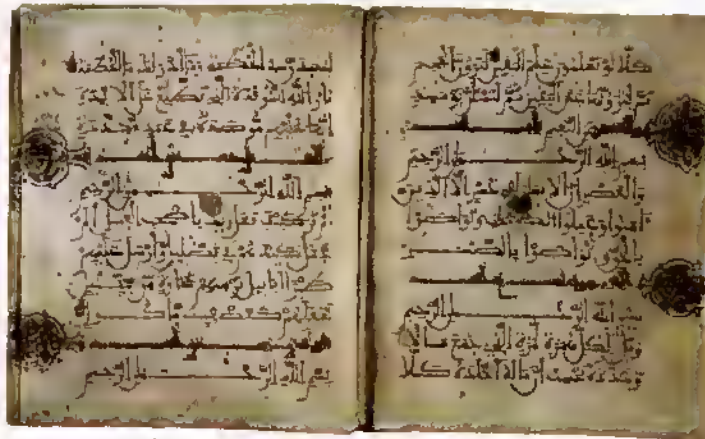 كلا لو تعلمون علم اليقين لترون الجحيم
ثم لترونها عين اليقين ثم لتسئلن يومئذ
عن النعيم
بسم الله الرحمن الرحيم
والعصر إن الانسن لفي خسر إلا الذين
ءامنوا وعملوا الصلحت وتواصوا
بالحق وتواصوا بالصبر
بسم الله الرحمن الرحيم
ويل لكل همزة لمزة الذي جمع مالا
وعدده يحسب أن ماله أخلده كلا
لينبذن في الحطمة وما أدريك ما الحطمة
نار الله الموقدة التي تطلع على الافئدة
إنها عليهم موصدة في عمد ممددة
بسم الله الرحمن الرحيم
ألم تر كيف فعل ربك بأصحب الفيل ألم
يجعل كيدهم في تضليل وأرسل عليهم
طيرا أبابيل ترميهم بحجارة من سجيل
فجعلهم كعصف مأكول
بسم الله الرحمن الرحيم